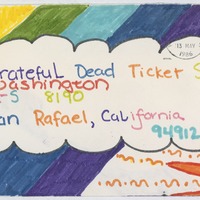 rateful Dead Ticket S
ashington
-S 8190
an Rafael, California
94912
13 MAY
1986